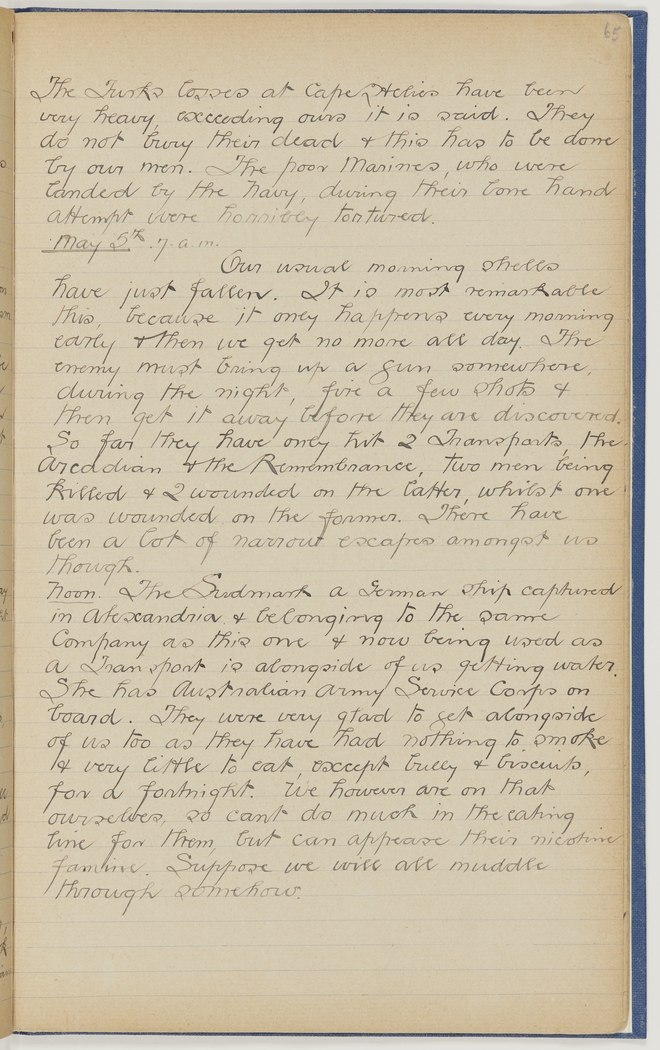 65
The Turks losses at Cape Helies have been
very heavy, exceeding ours it is said. They
do not bury their dead & this has to be done
by our men. The poor Marines, who were
landed by the Navy, during their lone hand
attempt were horribly tortured.
May 5th. 7. a.m.
Our usual morning shells
have just fallen. It is most remarkable
this, because it only happens every morning
early & then we get no more all day. The
enemy must bring up a gun somewhere,
during the night, fire a few shots &
then get it away before they are discovered.
So far they have only hit 2 Transports, the
Arcadian & the Remembrance, two men being
killed & 2 wounded on the latter, whilst one
was wounded on the former. There have
been a lot of narrow escapes amongst us
though.
Noon. The Sudmark a German ship captured
in Alexandria & belonging to the same
Company as this one & now being used as
a Transport is alongside of us getting water.
She has Australian Army Service Corps on
board. They were very glad to get alongside
of us too as they have had nothing to smoke
& very little to eat, except bully & biscuits,
for a fortnight. We however are on that
ourselves, so cant do much in the eating
line for them, but can appease their nicotine
famine. Suppose we will all muddle
through somehow.